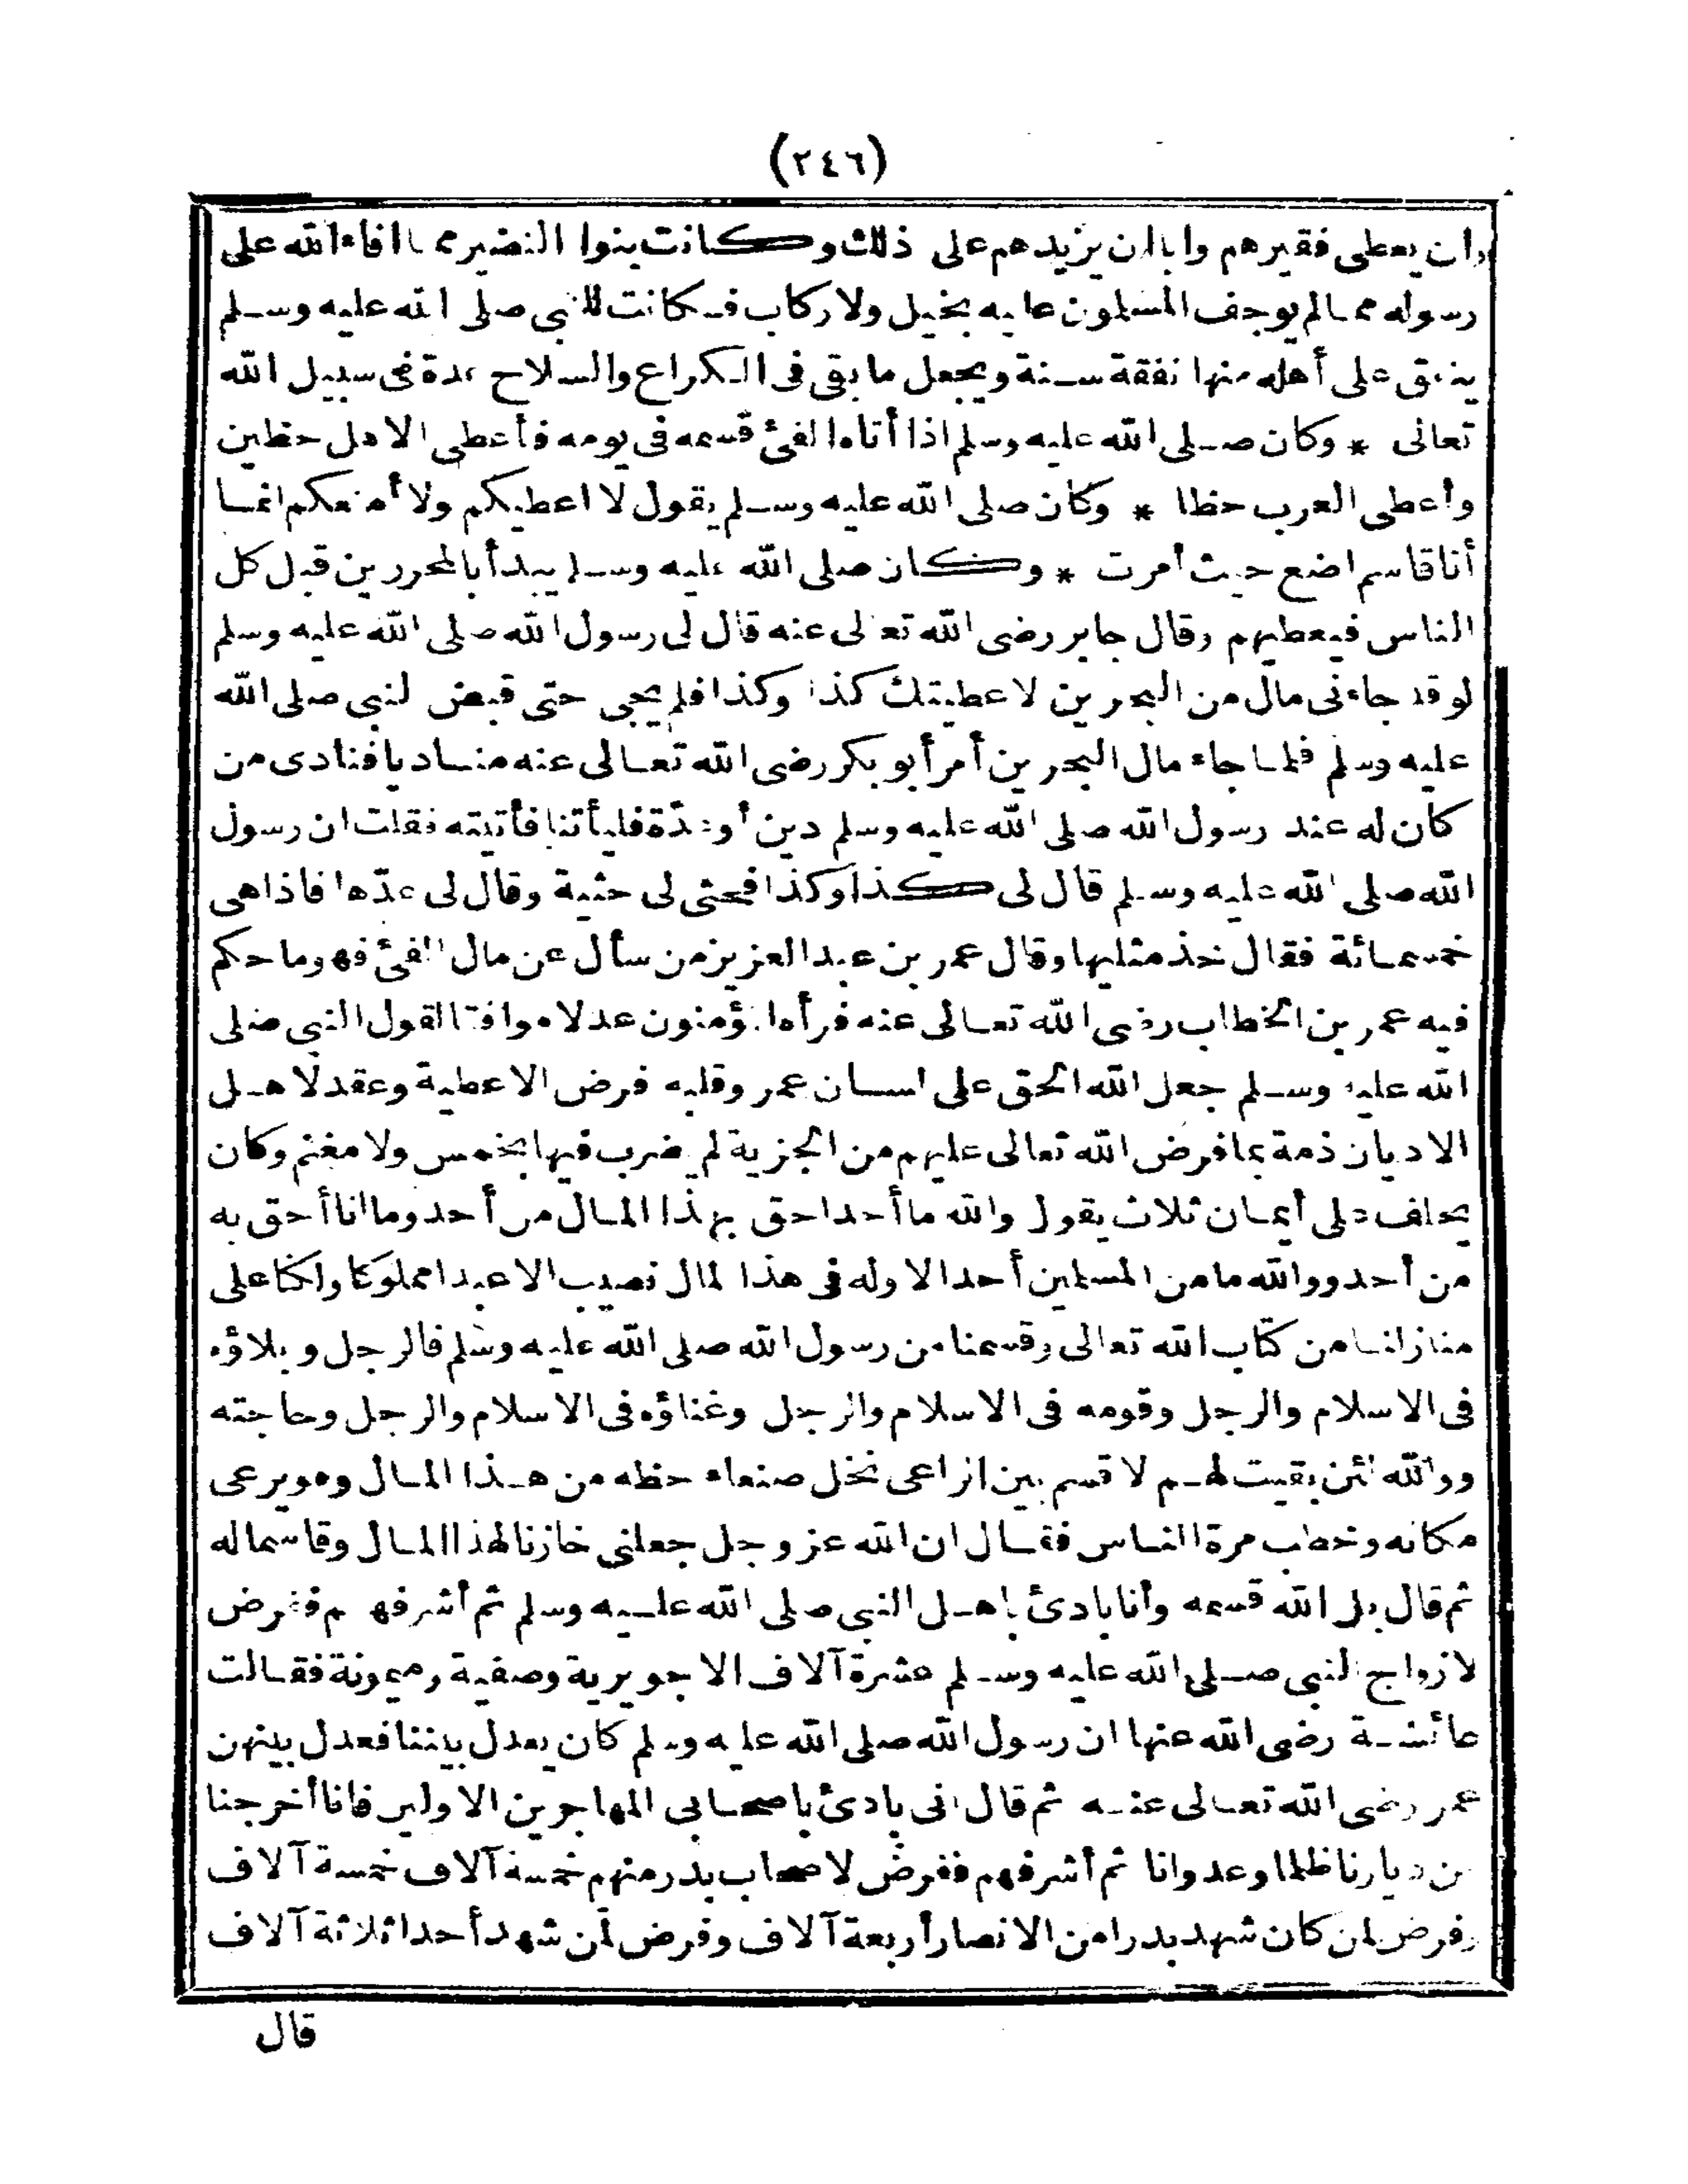 (٢٤٦)
وان يعطى فقيرهم وابا ان يزيدهم على ذلك وكانت بنوا النضير مما افاء الله على
رسوله مما لم يوجف المسلمون عليه بخيل ولا ركاب فكانت للنبي صلى الله عليه وسلم
ينفق على أهله منها نفقة سنة ويجعل ما بقى فى الكراع والسلاح عدة فى سبيل الله
تعالى * وكان صلى الله عليه وسلم اذا أتاه الفئ قسمه فى يومه فأعطى الاهل حظين
وأعطى العرب حظا * وكان صلى الله عليه وسلم يقول لا اعطيكم ولا أمنعكم انما
أنا قاسم اضع حيث أمرت * وكان صلى الله عليه وسلم يبدأ بالمحررين قبل كل
الناس فيعطيهم وقال جابر رضى الله تعالى عنه قال لى رسول الله صلى الله عليه وسلم
لو قد جاءنى مال من البحرين لاعطيتك كذا وكذا فلم يجى حتى قبض لنبي صلى الله
عليه وسلم فلما جاء مال البحرين أمر أبو بكر رضى الله تعالى عنه مناديا فنادى من
كان له عند رسول الله صلى الله عليه وسلم دين أو عدّة فليأتنا فأتيته فقلت ان رسول
الله صلى الله عليه وسلم قال لى كذا وكذا فحثى لى حثية وقال لى عدّها فاذا هى
خمسمائة فقال خذ مثليها وقال عمر بن عبد العزيز من سأل عن مال الفئ فهو ما حكم
فيه عمر بن الخطاب رضى الله تعالى عنه فرأه المؤمنون عدلا موافقا لقول النبي صلى
الله عليه وسلم جعل الله الحق على لسان عمر وقلبه فرض الاعطية وعقد لاهل
الاديان ذمة بما فرض الله تعالى عليهم من الجزية لم يضرب فيها بخمس ولا مغنم وكان
يحلف على أيمان ثلاث يقول والله ما أحد احق بهذا المال من أحد وما انا أحق به
من أحد ووالله ما من المسلمين أحد الا وله فى هذا المال نصيب الا عبدا مملوكا ولكنا على
منازلنا من كتاب الله تعالى وقسمنا من رسول الله صلى الله عليه وسلم فالرجل وبلاؤه
فى الاسلام والرجل وقومه فى الاسلام والرجل وغناؤه فى الاسلام والرجل وحاجته
ووالله لئن بقيت لهم لا قسم بين الراعى نخل صنعاء حظه من هذا المال وهو يرعى
مكانه وخطب مرة الناس فقال ان الله عز وجل جعلنى خازنا لهذا المال وقاسما له
ثم قال بل الله قسمه وأنا بادئ باهل النبي صلى الله عليه وسلم ثم أشرفهم ففرض
لازواج النبي صلى الله عليه وسلم عشرة آلاف الا جويرية وصفية وميمونة فقالت
عائشة رضى الله عنها ان رسول الله صلى الله عليه وسلم كان يعدل بيننا فعدل بينهن
عمر رضى الله تعالى عنه ثم قال انى بادئ باصحابى المهاجرين الاولين فانا أخرجنا
من ديارنا ظلما وعدوانا ثم أشرفهم ففرض لاصحاب بدر منهم خمسة آلاف خمسة آلاف
وفرض لمن كان شهد بدرا من الانصار أربعة آلاف وفرض لمن شهد أحدا ثلاثة آلاف
قال